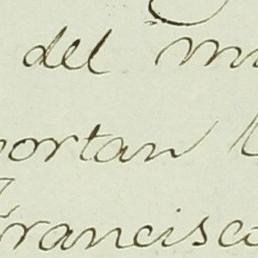 del m
portan
Francisco